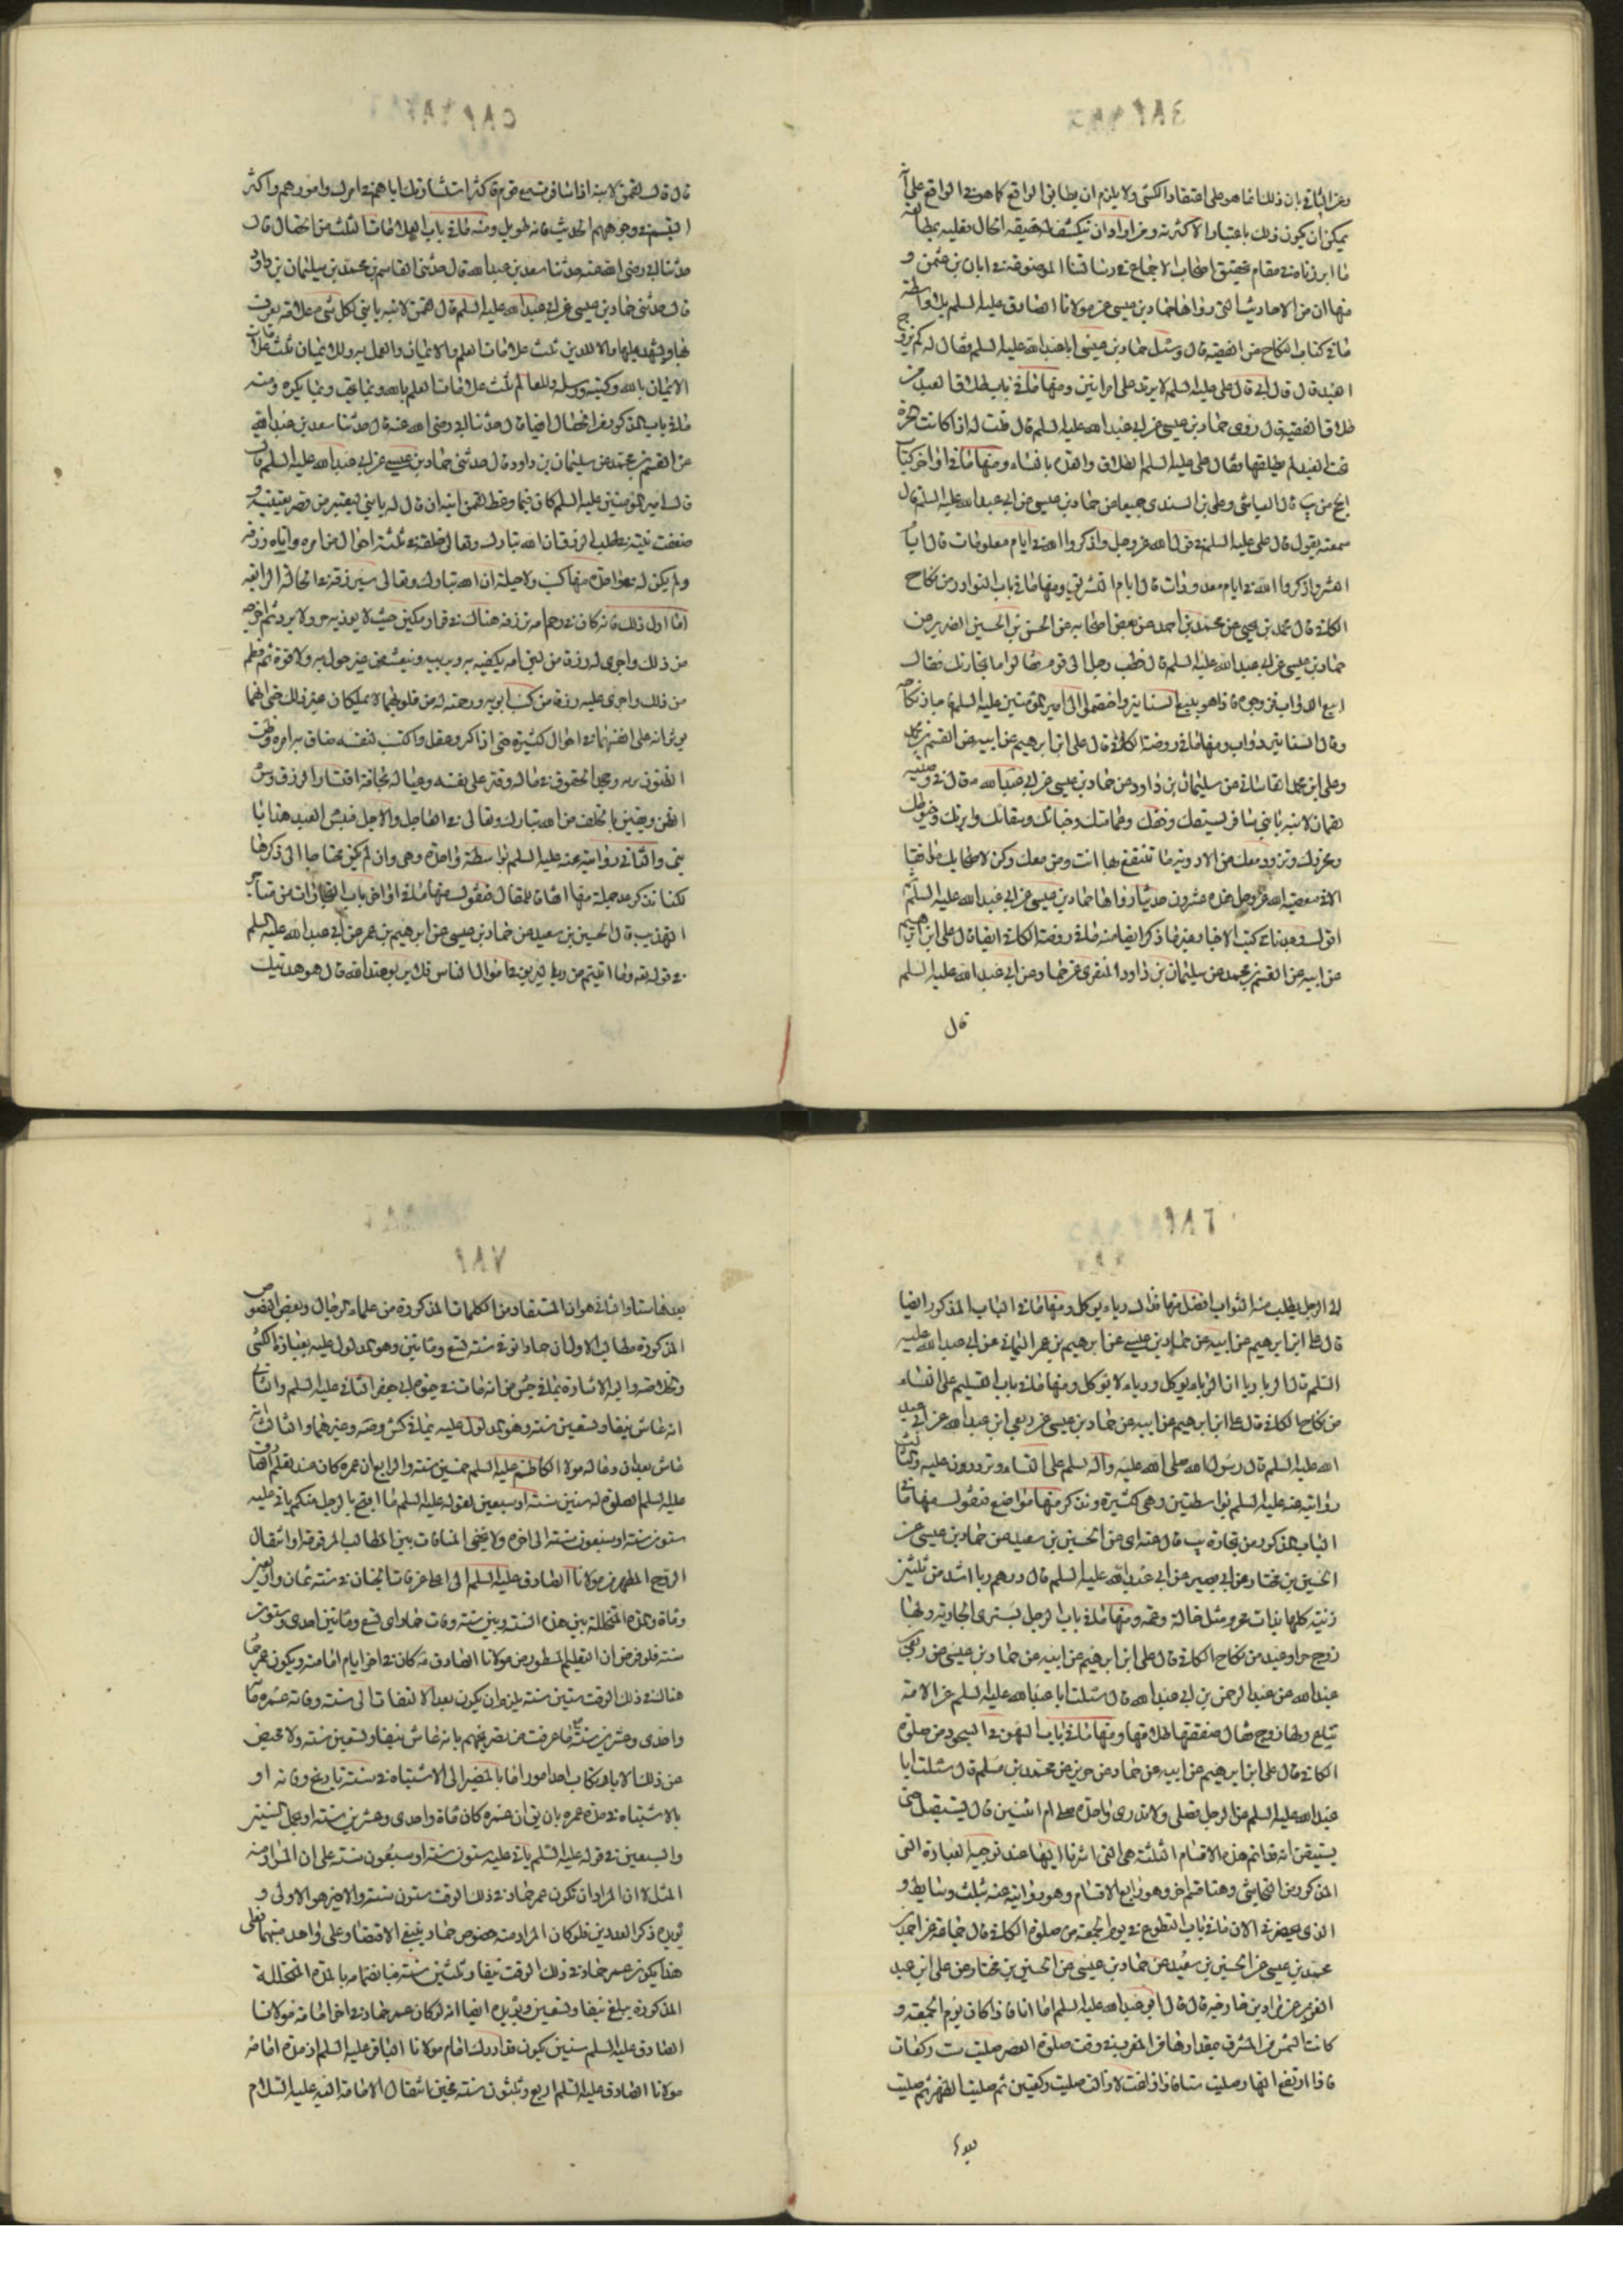 وعن الثاني بان ذلك انما هو على اعتقاد الكشي ولا يلزم ان يطابق الواقع كما هو في الواقع على انه
يمكن ان يكون ذلك باعتبار الاكثرية ومن اراد ان ينكشف له حقيقة الحال فعليه بمطالعة
ما ابرزناه في مقام تحقيق اصحاب الاجماع في رسالتنا الموضوعة في ابان بن عثمن و
منها ان من الاحاديث التي رواها حماد بن عيسى عن مولانا الصادق عليه السلم بلا واسطة
ما في كتاب النكاح من الفقيه قال وسئل حماد بن عيسى ابا عبد الله عليه السلم فقال له كم يتزوج
العبد قال قال ابي قال علي عليه السلم لا يزيد على امراتين ومنها ما في باب طلاق العبد من
طلاق الفقيه قال روى حماد بن عيسى عن ابي عبد الله عليه السلم قال قلت له اذا كانت الحرة
تحت العبد لم يطلقها فقال علي عليه السلم الطلاق والعدة بالنساء ومنها ما في اواخر كتاب
الحج من يب قال العباس وعلي بن السندي جميعا عن حماد بن عيسى عن ابي عبد الله عليه السلم قال
سمعته يقول قال علي عليه السلم في قول الله عز وجل واذكروا الله في ايام معلومات قال ايام
العشر واذكروا الله في ايام معدودات قال ايام التشريق ومنها ما في باب النوادر من نكاح
الكافي قال محمد بن يحيى عن محمد بن احمد عن بعض اصحابه عن الحسن بن الحسين الضرير عن
حماد بن عيسى عن ابي عبد الله عليه السلم قال خطب رجل الى قوم فقالوا ما تجارتك فقال
ابيع الدواب فزوجوه فاذا هو يبيع السنانير واختصموا الى امير المؤمنين عليه السلم فاجاز نكاحه
وقال السنانير دواب ومنها ما في روضة الكافي قال علي ابن ابرهيم عن ابيه عن القسم بن محمد
وعلي ابن محمد القاساني عن سليمان بن داود عن حماد بن عيسى عن ابي عبد الله قال في وصية
لقمان لابنه يا بني سافر بسيفك وخفك وعمامتك وخبائك وسقائك وابرتك وخيوطك
ومخرزك وتزود معك من الادوية ما تنتفع بها انت ومن معك وكن لاصحابك موافقا
الا في معصية الله عز وجل هذه عشرون حديثا رواها حماد بن عيسى عن ابي عبد الله عليه السلم
اقول وعدنا في كتب الاخبار غير ما ذكر ايضا منه ما في روضة الكافي ايضا قال علي ابن ابرهيم
عن ابيه عن القسم بن محمد عن سليمان بن داود المنقري عن حماد عن ابي عبد الله عليه السلم
قال
قال قال لقمن لابنه اذا سافرت مع قوم فاكثر استشارتك اياهم في امرك وامورهم واكثر
التبسم في وجوههم الحديث فانه طويل ومنه ما في باب العلامات الثلث من الخصال قال
حدثنا ابي رضي الله عنه حدثنا سعد بن عبد الله قال حدثني القاسم بن محمد بن سليمان بن داود
قال حدثني حماد بن عيسى عن ابي عبد الله عليه السلم قال لقمن لابنه يا بني لكل شيء علامة يعرف
بها ويشهد عليها وان للدين ثلث علامات العلم والايمان والعمل به وللايمان ثلث علامات
الايمان بالله وكتبه ورسله وللعالم ثلث علامات العلم بالله وبما يحب وبما يكره ومنه
ما في باب المذكور من الخصال ايضا قال حدثنا ابي رضي الله عنه قال حدثنا سعد بن عبد الله
عن القسم بن محمد عن سليمان بن داود قال حدثني حماد بن عيسى عن ابي عبد الله عليه السلم قال
قال امير المؤمنين عليه السلم كان فيما وعظ لقمن ابنه ان قال له يا بني ليعتبر من قصر يقينه و
ضعفت نيته في طلب الرزق ان الله تبارك وتعالى خلقه في ثلثة احوال من امره واتاه رزقه
ولم يكن له في واحدة منها كسب ولا حيلة ان الله تبارك وتعالى سيرزقه في الحالة الرابعة
اما اول ذلك فانه كان في رحم امه يرزقه هناك في قرار مكين حيث لا يؤذيه حر ولا برد ثم اخرجه
من ذلك واجرى له رزقا من لبن امه يكفيه به ويربيه وينعشه من غير حول به ولا قوة ثم فطم
من ذلك واجرى عليه رزقا من كسب ابويه ورحمة له من قلوبهما لا يملكان غير ذلك حتى انهما
يؤثرانه على انفسهما في احوال كثيرة حتى اذا كبر وعقل واكتسب لنفسه ضاق به امره وظن
الظنون بربه وجحد الحقوق في ماله وقتر على نفسه وعياله مخافة اقتار الرزق وسوء
الظن ويقين بالخلف من الله تبارك وتعالى في العاجل والاجل فبئس العبد هذا يا
بني واما الثاني روايته عنه عليه السلم بواسطة واحدة وهي وان لم يكن محتاجا الى ذكرها
لكنا نذكر عدة جملة منها اعانة للمقال فنقول منها ما في اواخر باب التجارات من متاجر
التهذيب قال الحسين بن سعيد عن حماد بن عيسى عن ابرهيم بن عمر عن ابي عبد الله عليه السلم
في قوله تعالى وما اتيتم من ربا ليربو في اموال الناس فلا يربو عند الله قال هو هديتك
الى الرجل يطلب منه الثواب افضل منها فذلك ربا يؤكل ومنها ما في الباب المذكور ايضا
قال علي ابن ابرهيم عن ابيه عن حماد بن عيسى عن ابرهيم بن عمر اليماني عن ابي عبد الله عليه
السلم قال الربا ربا ان ربا يؤكل وربا لا يؤكل ومنها ما في باب التسليم على النساء
من نكاح الكافي قال علي ابن ابرهيم عن ابيه عن حماد بن عيسى عن ربعي ابن عبد الله عن ابي عبد
الله عليه السلم قال رسول الله صلى الله عليه وآله يسلم على النساء ويرددن عليه والثالث
روايته عنه عليه السلم بواسطتين وهي كثيرة ونذكر منها مواضع فنقول منها ما في
الباب المذكور من تجارة يب قال عنه اي عن الحسين بن سعيد عن حماد بن عيسى عن
الحسين بن مختار عن ابي بصير عن ابي عبد الله عليه السلم قال درهم ربا اشد من ثلثين
زنية كلها بذات محرم مثل خالة وعمة ومنها ما في باب الرجل يشتري الجارية ولها
زوج حر او عبد من نكاح الكافي قال علي ابن ابرهيم عن ابيه عن حماد بن عيسى عن ربعي
عبد الله عن عبد الرحمن بن ابي عبد الله قال سئلت ابا عبد الله عليه السلم عن الامة
تباع ولها زوج فقال صفقتها طلاقها ومنها ما في باب السهو في السجود من صلوة
الكافي قال علي ابن ابرهيم عن ابيه عن حماد عن حريز عن محمد بن مسلم قال سئلت ابا
عبد الله عليه السلم عن الرجل يصلي ولا يدري واحدة صلى ام اثنتين قال يستقبل حتى
يستيقن انه قد اتم هذه الاقسام الثلثة هي التي اشرنا اليها عند توجيه العبارة التي
المذكور من النجاشي وهنا قسم اخر وهو رابع الاقسام وهو روايته عنه بثلث وسايط و
الذي يحضرني الان ما في باب التطوع في يوم الجمعة من صلوة الكافي قال جماعة عن احمد بن
محمد بن عيسى عن الحسين بن سعيد عن حماد بن عيسى عن الحسين بن مختار عن علي ابن عبد
العزيز عن مراد بن خارجة قال قال ابو عبد الله عليه السلم اما انا فاذا كان يوم الجمعة و
كانت الشمس من المشرق مقدارها من المغرب في وقت صلوة العصر صليت ست ركعات
فاذا ارتفع النهار صليت ستا فاذا زاغت او زالت صليت ركعتين ثم صليت الظهر ثم صليت
بعدها
بعدها ستا والثاني هو ان المستفاد من الكلمات المذكورة من علماء الرجال وبعض النصوص
المذكورة مطالب الاول ان حمادا توفي سنة تسع ومأتين وهو المدلول عليه بعبارة الكشي
وخلاصة واليه الاشارة بما في جش من انه مات في حيوة ابي جعفر الثاني عليه السلم والثاني
انه عاش نيفا وتسعين سنة وهو المدلول عليه بما في كش وصه وغيرهما والثالث انه
عاش بعد ان دعا له مولانا الكاظم عليه السلم خمسين سنة والرابع ان عمره كان عند تعليم الصادق
عليه السلم الصلوة له ستين سنة او سبعين لقوله عليه السلم ما اقبح بالرجل منكم ياتي عليه
ستون سنة او سبعون سنة الى اخره ولا يخفى المنافات بين المطالب المرقومة اذ انتقال
الروح المطهر من مولانا الصادق عليه السلم الى اعلى غرفات الجنان في سنة ثمان واربعين
ومأة والمدة المتخللة بين هذه السنة وبين سنة وفات حماد اي تسع ومأتين احدى وستون
سنة فلو فرض ان التعليم المسطور من مولانا الصادق كان في اخر ايام امامته ويكون عمر حماد
هنالك في ذلك الوقت ستين سنة يلزم ان يكون بعد الالتفات الى سنة وفاته عمره مأة
واحدى وعشرين سنة مع ما عرفت من تصريحهم بانه عاش نيفا وتسعين سنة ولا محيص
عن ذلك الا بارتكاب احد امور اما بالمصير الى الاشتباه في سنة تاريخ وفاته او
بالاشتباه في مدة عمره بان يق ان عمره كان مأة واحدى وعشرين سنة او بحمل الستين
والسبعين في قوله عليه السلم ياتي عليه ستون سنة او سبعون سنة على ان المراد منه
المثل لا ان المراد ان يكون عمر حماد في ذلك الوقت ستون سنة والاخير هو الاولى و
يؤيده ذكر العددين فلو كان المراد منه خصوص حماد ينبغي الاقتصار على واحد منهما فعلى
هذا يكون عمر حماد في ذلك الوقت نيفا وثلثين سنة فبانضمامه بالمدة المتخللة
المذكورة يبلغ نيفا وتسعين ويؤيده ايضا انه لو كان عمر حماد في اخر امامة مولانا
الصادق عليه السلم ستين يكون قد ادرك امام مولانا الباقر عليه السلم اذ مدة امامة
مولانا الصادق عليه السلم اربع وثلثون سنة فحين انتقال الامامة اليه عليه السلام